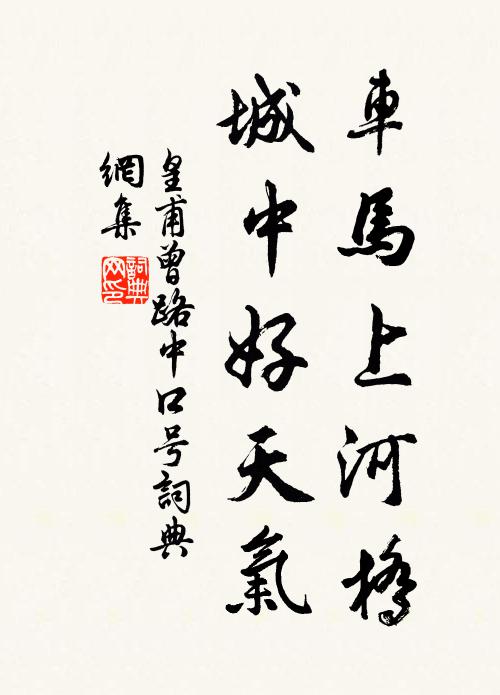 車馬上河橋
城中好天氣
皇甫曾路中口号詞典
網集
詞典網印